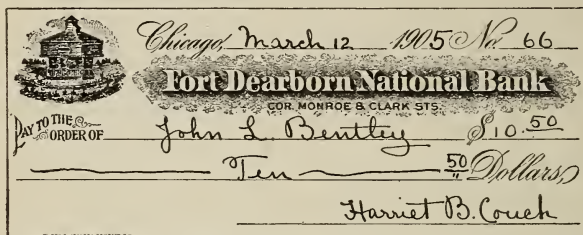 Chicago, March 12 1905 No. 66
Fort Dearborn National Bank
COR. MONROE & CLARK STS.
PAY TO THE ORDER OF John L. Bentley $10.50
Ten 50 Dollars
Harriet B. Couch